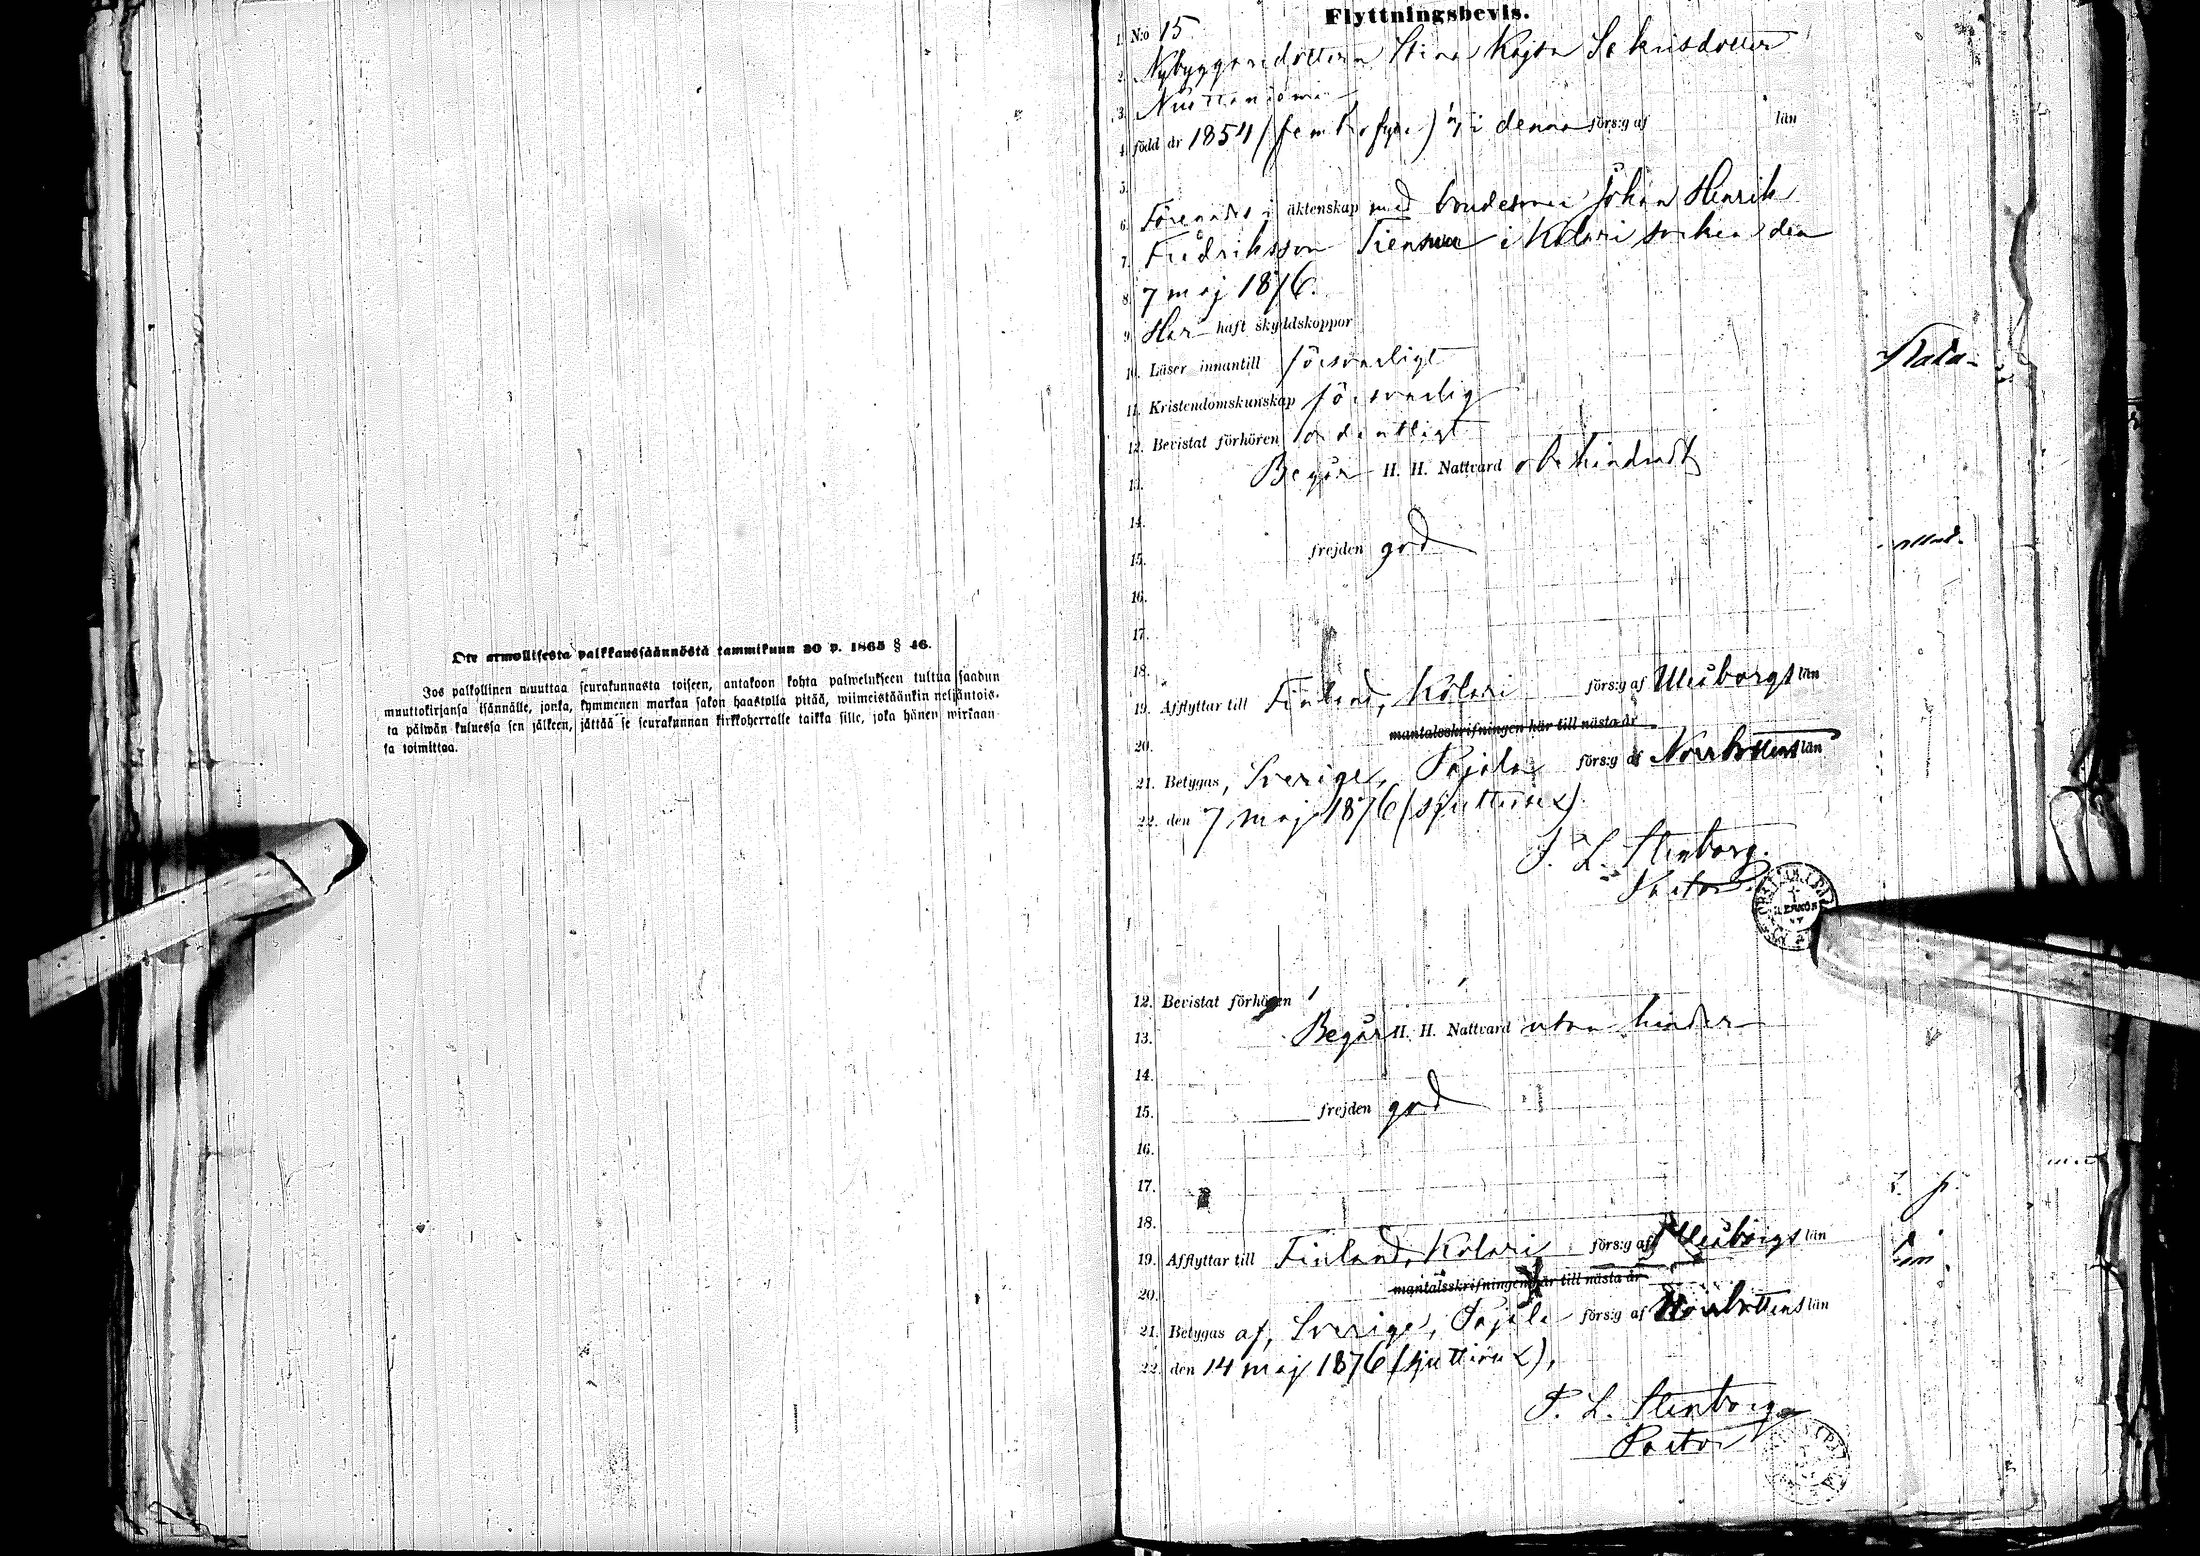 Ote armollisesta palkkaussäännöstä tammikuun 30 p. 1865 § 46.
Jos palkollinen muuttaa seurakunnasta toiseen, antakoon kohta palwelukseen tultua saadun
muuttokirjansa isännälle, jonka, kymmenen markan sakon haastolla pitää, wiimeistäänkin neljäntois-
ta päiwän kuluessa sen jälkeen, jättää se seurakunnan kirkkoherralle taikka sille, joka hänen wirkaan-
sa toimittaa.
Flyttningsbevis.
1. N:o 15
2. Nybyggaredottern Stina Kajsa
3.
4. född år 1854 (femtiofyra) i denna förs:g af län
5.
6. Förenades i äktenskap med bondesonen Johan Henrik
7. Fredriksson i Kolari socken den
8. 7 maj 1876.
9. Har haft skyddskoppor
10. Läser innantill försvarligt
11. Kristendomskunskap försvarlig
12. Bevistat förhören ordentligt
13. Begår H. H. Nattvard obehindradt
14.
15. frejden god
16.
17.
18.
19. Afflyttar till Finland, Kolari förs:g af Uleåborgs län
20. mantalsskrifningen här till nästa år
21. Betygas, Sverige, Pajala förs:g af Norrbottens län
22. den 7 maj 1876 (sjuttiosex).
P. L. Stenborg.
Pastor.
12. Bevistat förhören
13. Begår H. H. Nattvard utan hinder
14.
15. frejden god
16.
17.
18.
19. Afflyttar till Finland, Kolari förs:g af Uleåborgs län
20. mantalsskrifningen här till nästa år
21. Betygas af, Sverige, Pajala förs:g af Norrbottens län
22. den 14 maj 1876 (sjuttiosex),
P. L. Stenborg
Pastor